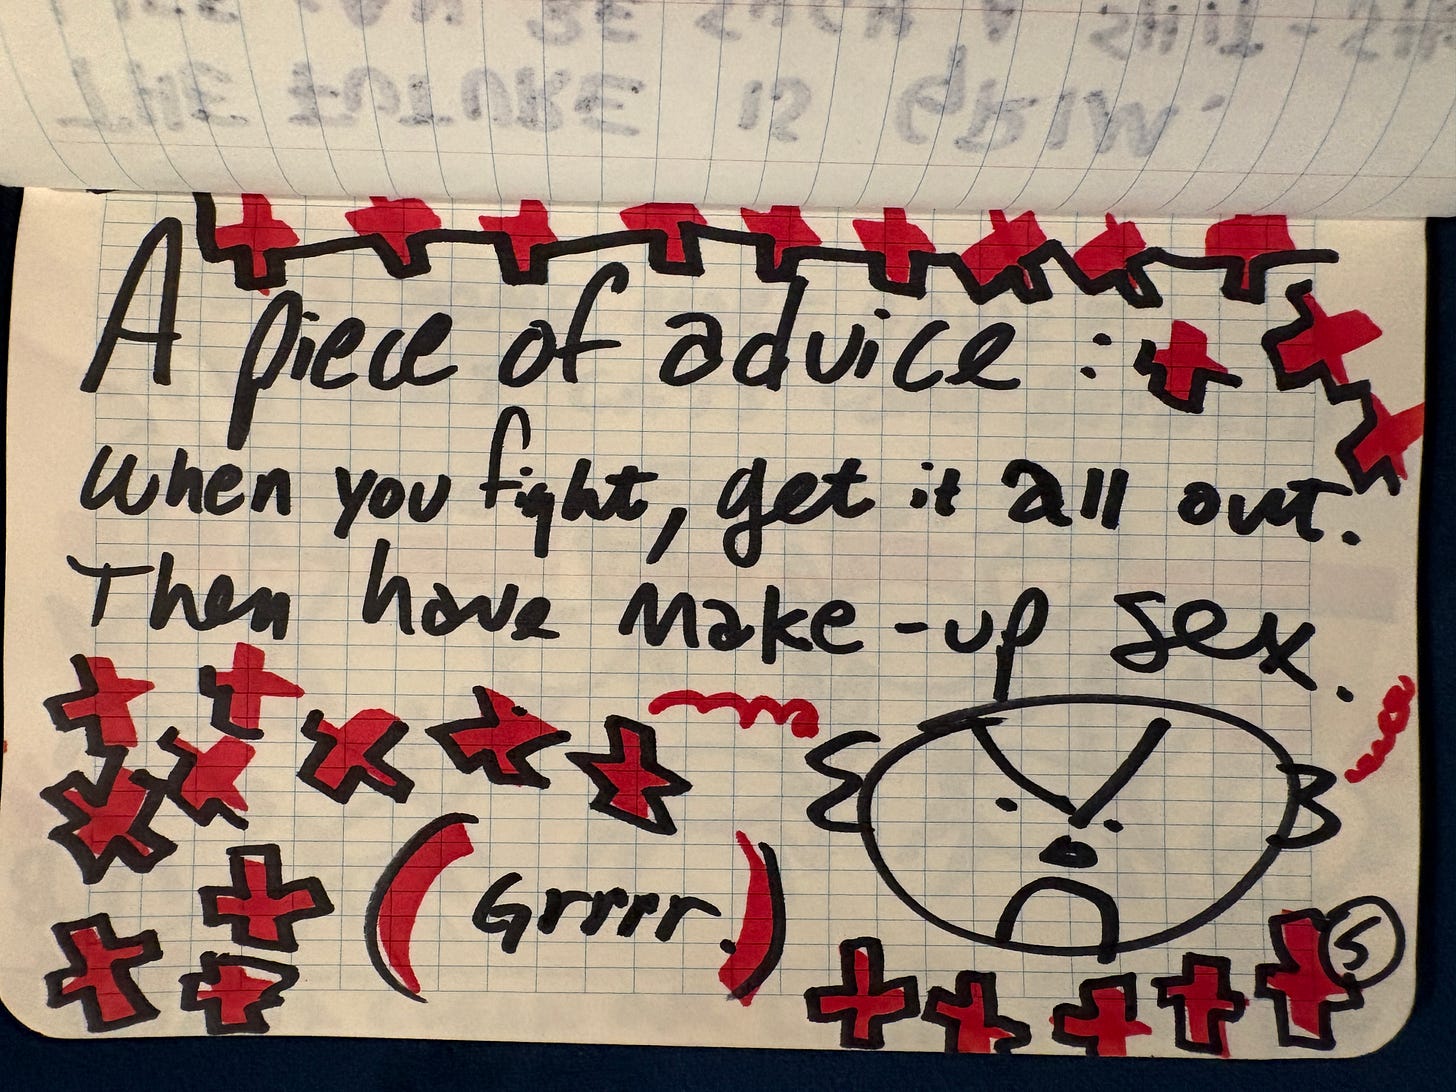 THE FUTURE IS GRIM.
A piece of advice :
when you fight, get it all out.
Then have make-up sex.
(Grrrr.)
5